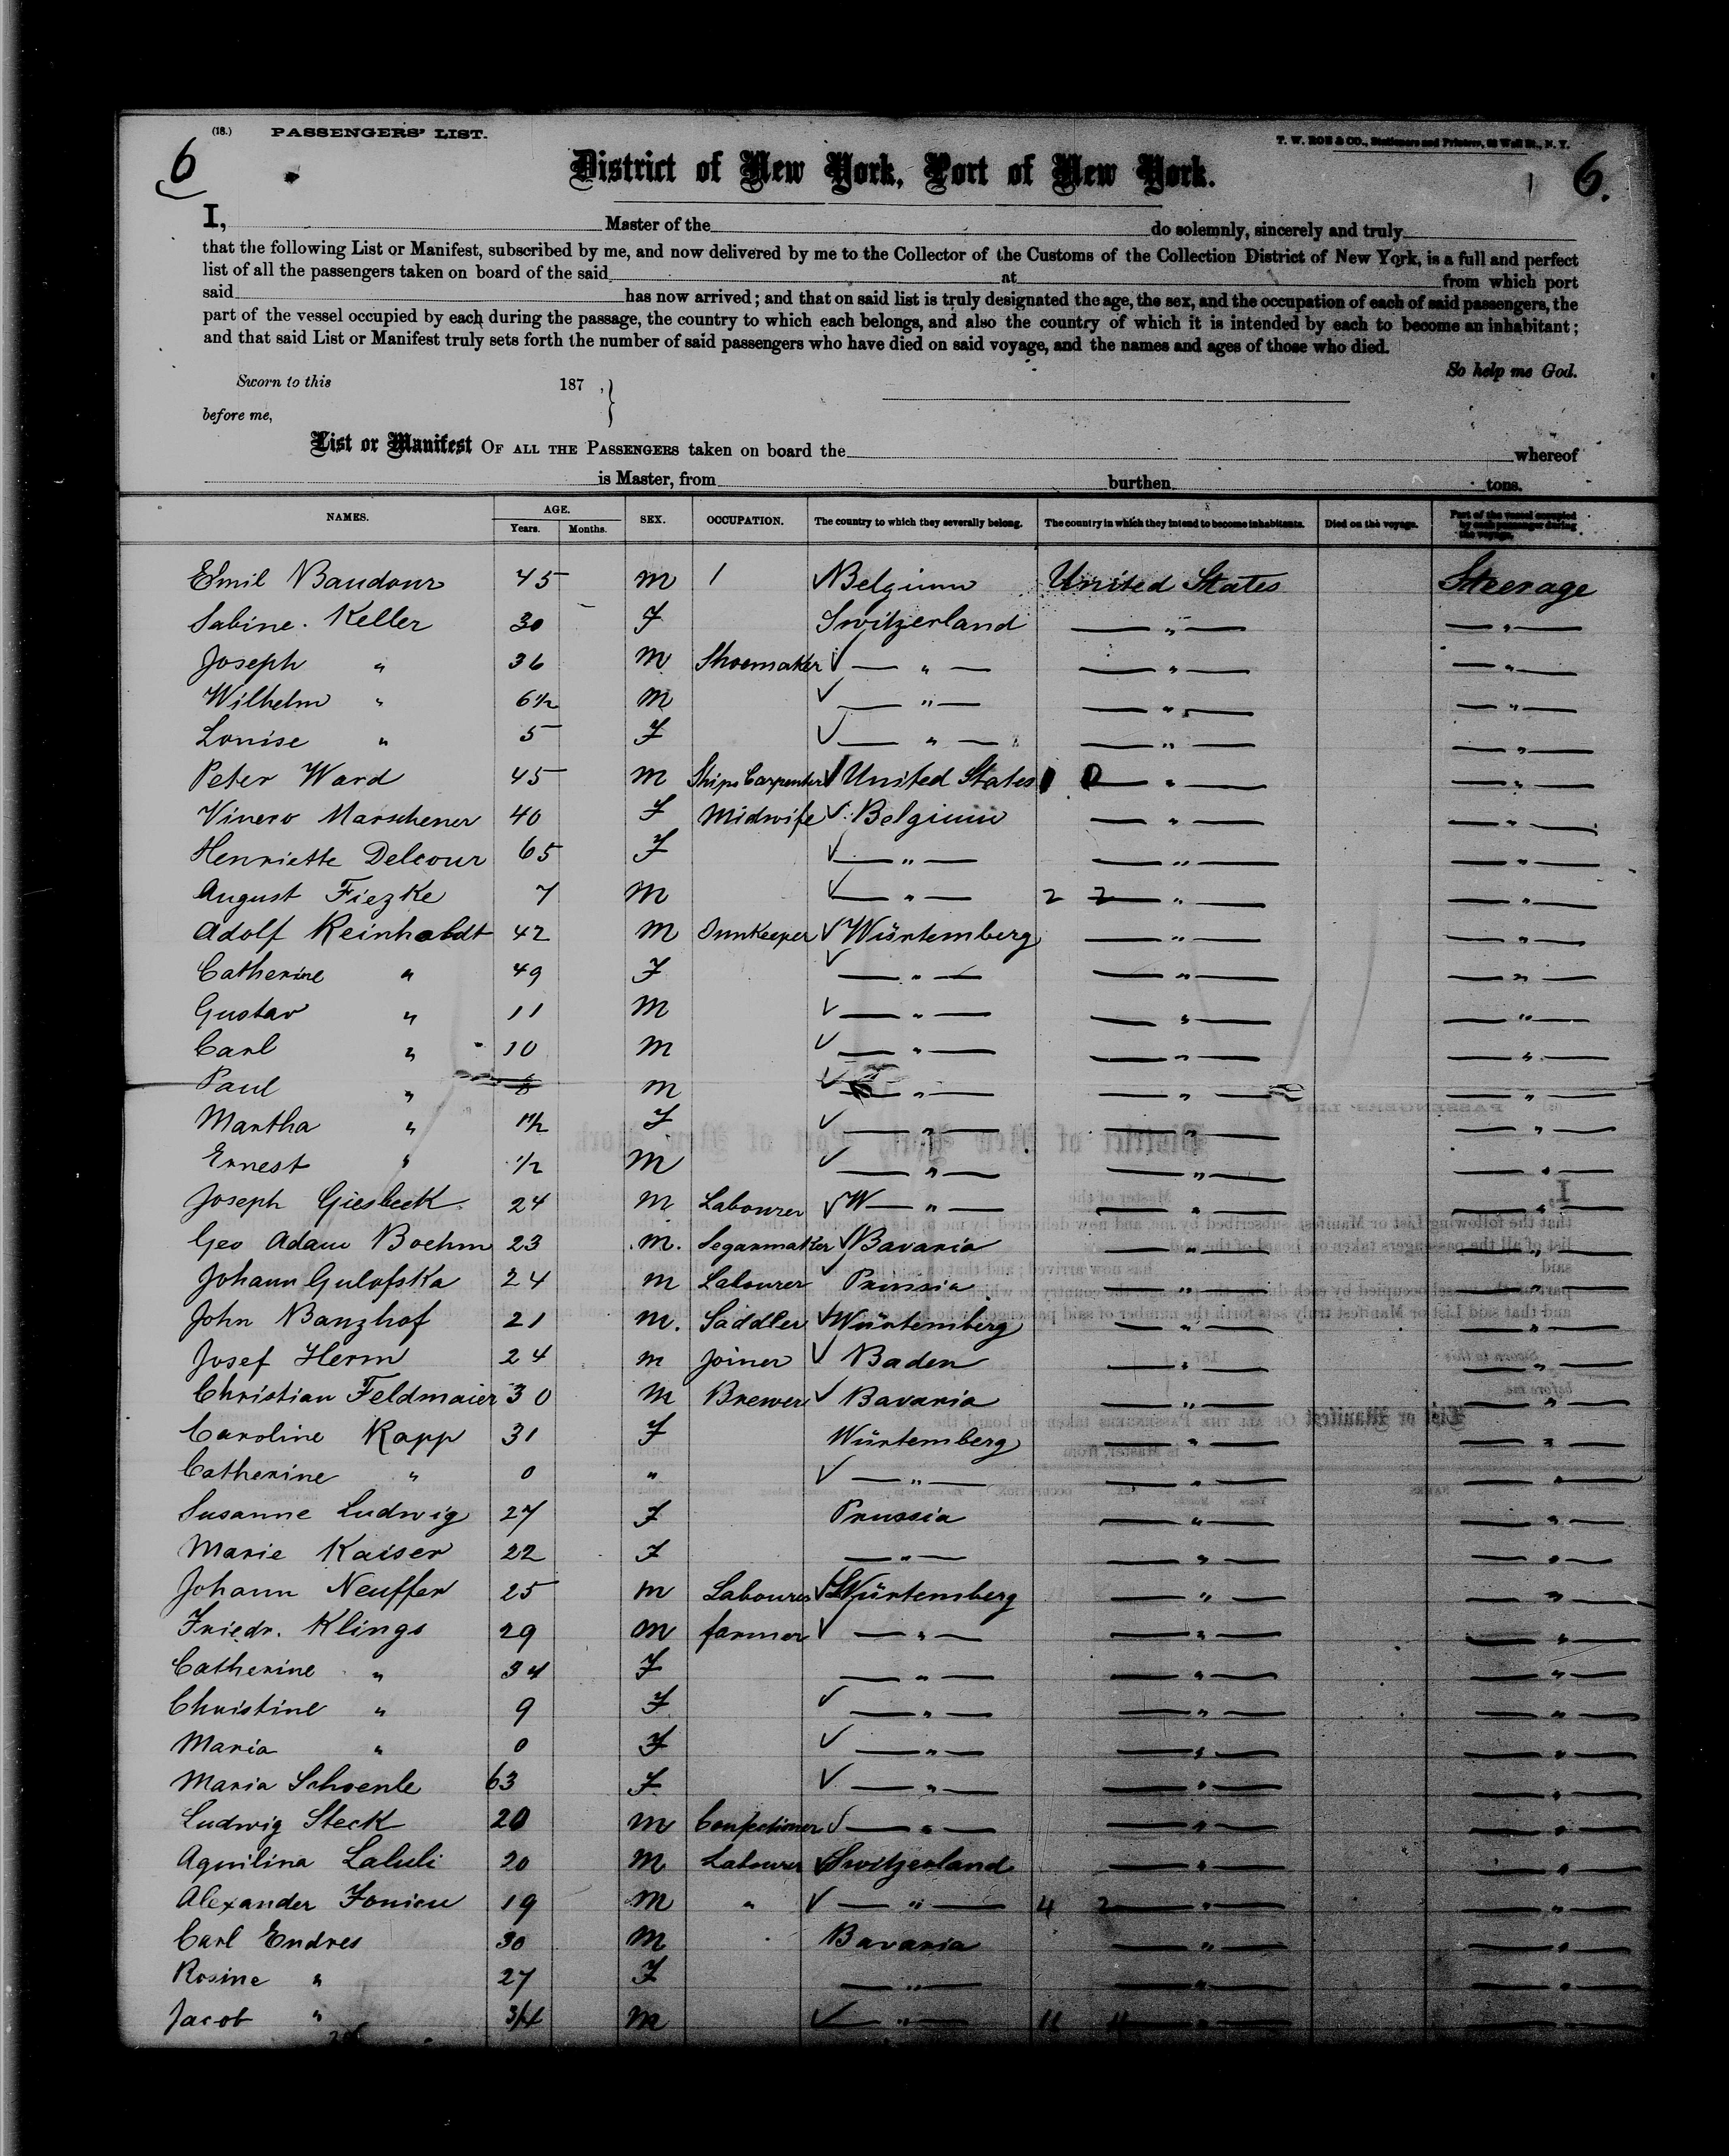 (18.) PASSENGERS' LIST.
T. W. ROE & CO., Stationers and Printers, Wall St., N. Y.
6
6.
District of New York, Port of New York.
I, Master of the do solemnly, sincerely and truly
that the following List or Manifest, subscribed by me, and now delivered by me to the Collector of the Customs of the Collection District of New York, is a full and perfect
list of all the passengers taken on board of the said at from which port
said has now arrived; and that on said list is truly designated the age, the sex, and the occupation of each of said passengers, the
part of the vessel occupied by each during the passage, the country to which each belongs, and also the country of which it is intended by each to become an inhabitant;
and that said List or Manifest truly sets forth the number of said passengers who have died on said voyage, and the names and ages of those who died.
So help me God.
Sworn to this 187 ,}
before me,
List or Manifest OF ALL THE PASSENGERS taken on board the whereof
is Master, from burthen tons.
NAMES. AGE. Years. Months. SEX. OCCUPATION. The country to which they severally belong. The country in which they intend to become inhabitants. Died on the voyage. Part of the vessel occupied by each passenger during the voyage.
Emil Baudour 45 M / Belgium United States Steerage
Sabine Keller 30 F Switzerland — " — — " —
Joseph " 36 M Shoemaker ✓ — " — — " — — " —
Wilhelm " 6½ M ✓ — " — — " — — " —
Louise " 5 F ✓ — " — — " — — " —
Peter Ward 45 M Ships Carpenter United States — " — — " —
Vinero Marschener 40 F Midwife ✓ Belgium — " — — " —
Henriette Delcour 65 F ✓ — " — — " — — " —
August Fiezke 7 M ✓ — " — 2 2 — " — — " —
Adolf Reinholdt 42 M Innkeeper ✓ Würtemberg — " — — " —
Catherine " 49 F ✓ — " — — " — — " —
Gustav " 11 M ✓ — " — — " — — " —
Carl " 10 M ✓ — " — — " — — " —
Paul " M ✓ — " — — " — — " —
Martha " 1½ F ✓ — " — — " — — " —
Ernest " ½ M ✓ — " — — " — — " —
Joseph Giesbeck 24 M Labourer ✓ W — " — — " — — " —
Geo Adam Boehm 23 M. Segarmaker ✓ Bavaria — " — — " —
Johann Gulofska 24 M Labourer ✓ Prussia — " — — " —
John Banzhof 21 M. Saddler ✓ Würtemberg — " — — " —
Josef Herm 24 M Joiner ✓ Baden — " — — " —
Christian Feldmaier 30 M Brewer ✓ Bavaria — " — — " —
Caroline Rapp 31 F Würtemberg — " — — " —
Catherine " 0 " ✓ — " — — " — — " —
Susanne Ludwig 27 F Prussia — " — — " —
Marie Kaiser 22 F — " — — " — — " —
Johann Neuffer 25 M Labourer ✓ Würtemberg — " — — " —
Friedr. Klings 29 M farmer ✓ — " — — " — — " —
Catherine " 34 F — " — — " — — " —
Christine " 9 F ✓ — " — — " — — " —
Maria " 0 F ✓ — " — — " — — " —
Maria Schoenle 63 F ✓ — " — — " — — " —
Ludwig Steck 20 M Confectioner ✓ — " — — " — — " —
Aquilina Laluli 20 M Labourer ✓ Switzerland — " — — " —
Alexander Fonicu 19 M " ✓ — " — 4 2 — " — — " —
Carl Endres 30 M Bavaria — " — — " —
Rosine " 27 F — " — — " — — " —
Jacob " 3/4 M ✓ — " — 11 4 — " — — " —